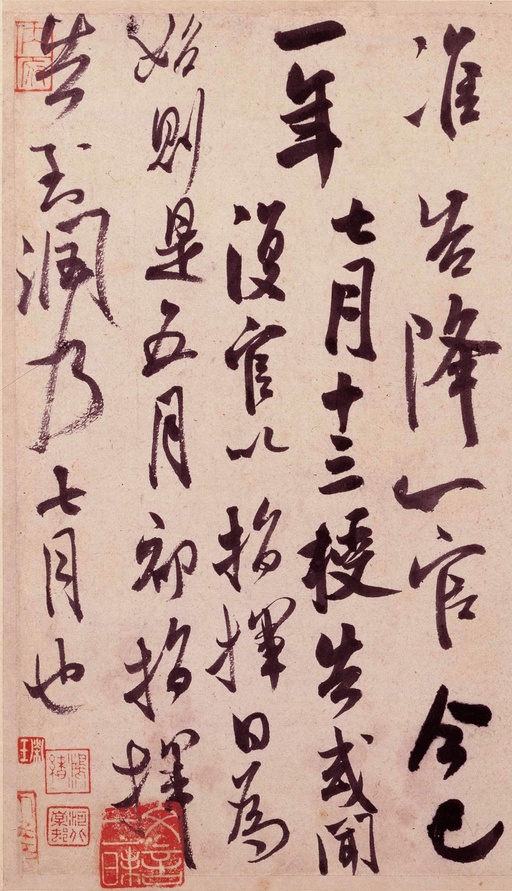 准告降一官今已
一年
七月十三授告或聞
復官以指揮日為
始則是五月初指揮
告至潤乃七月也